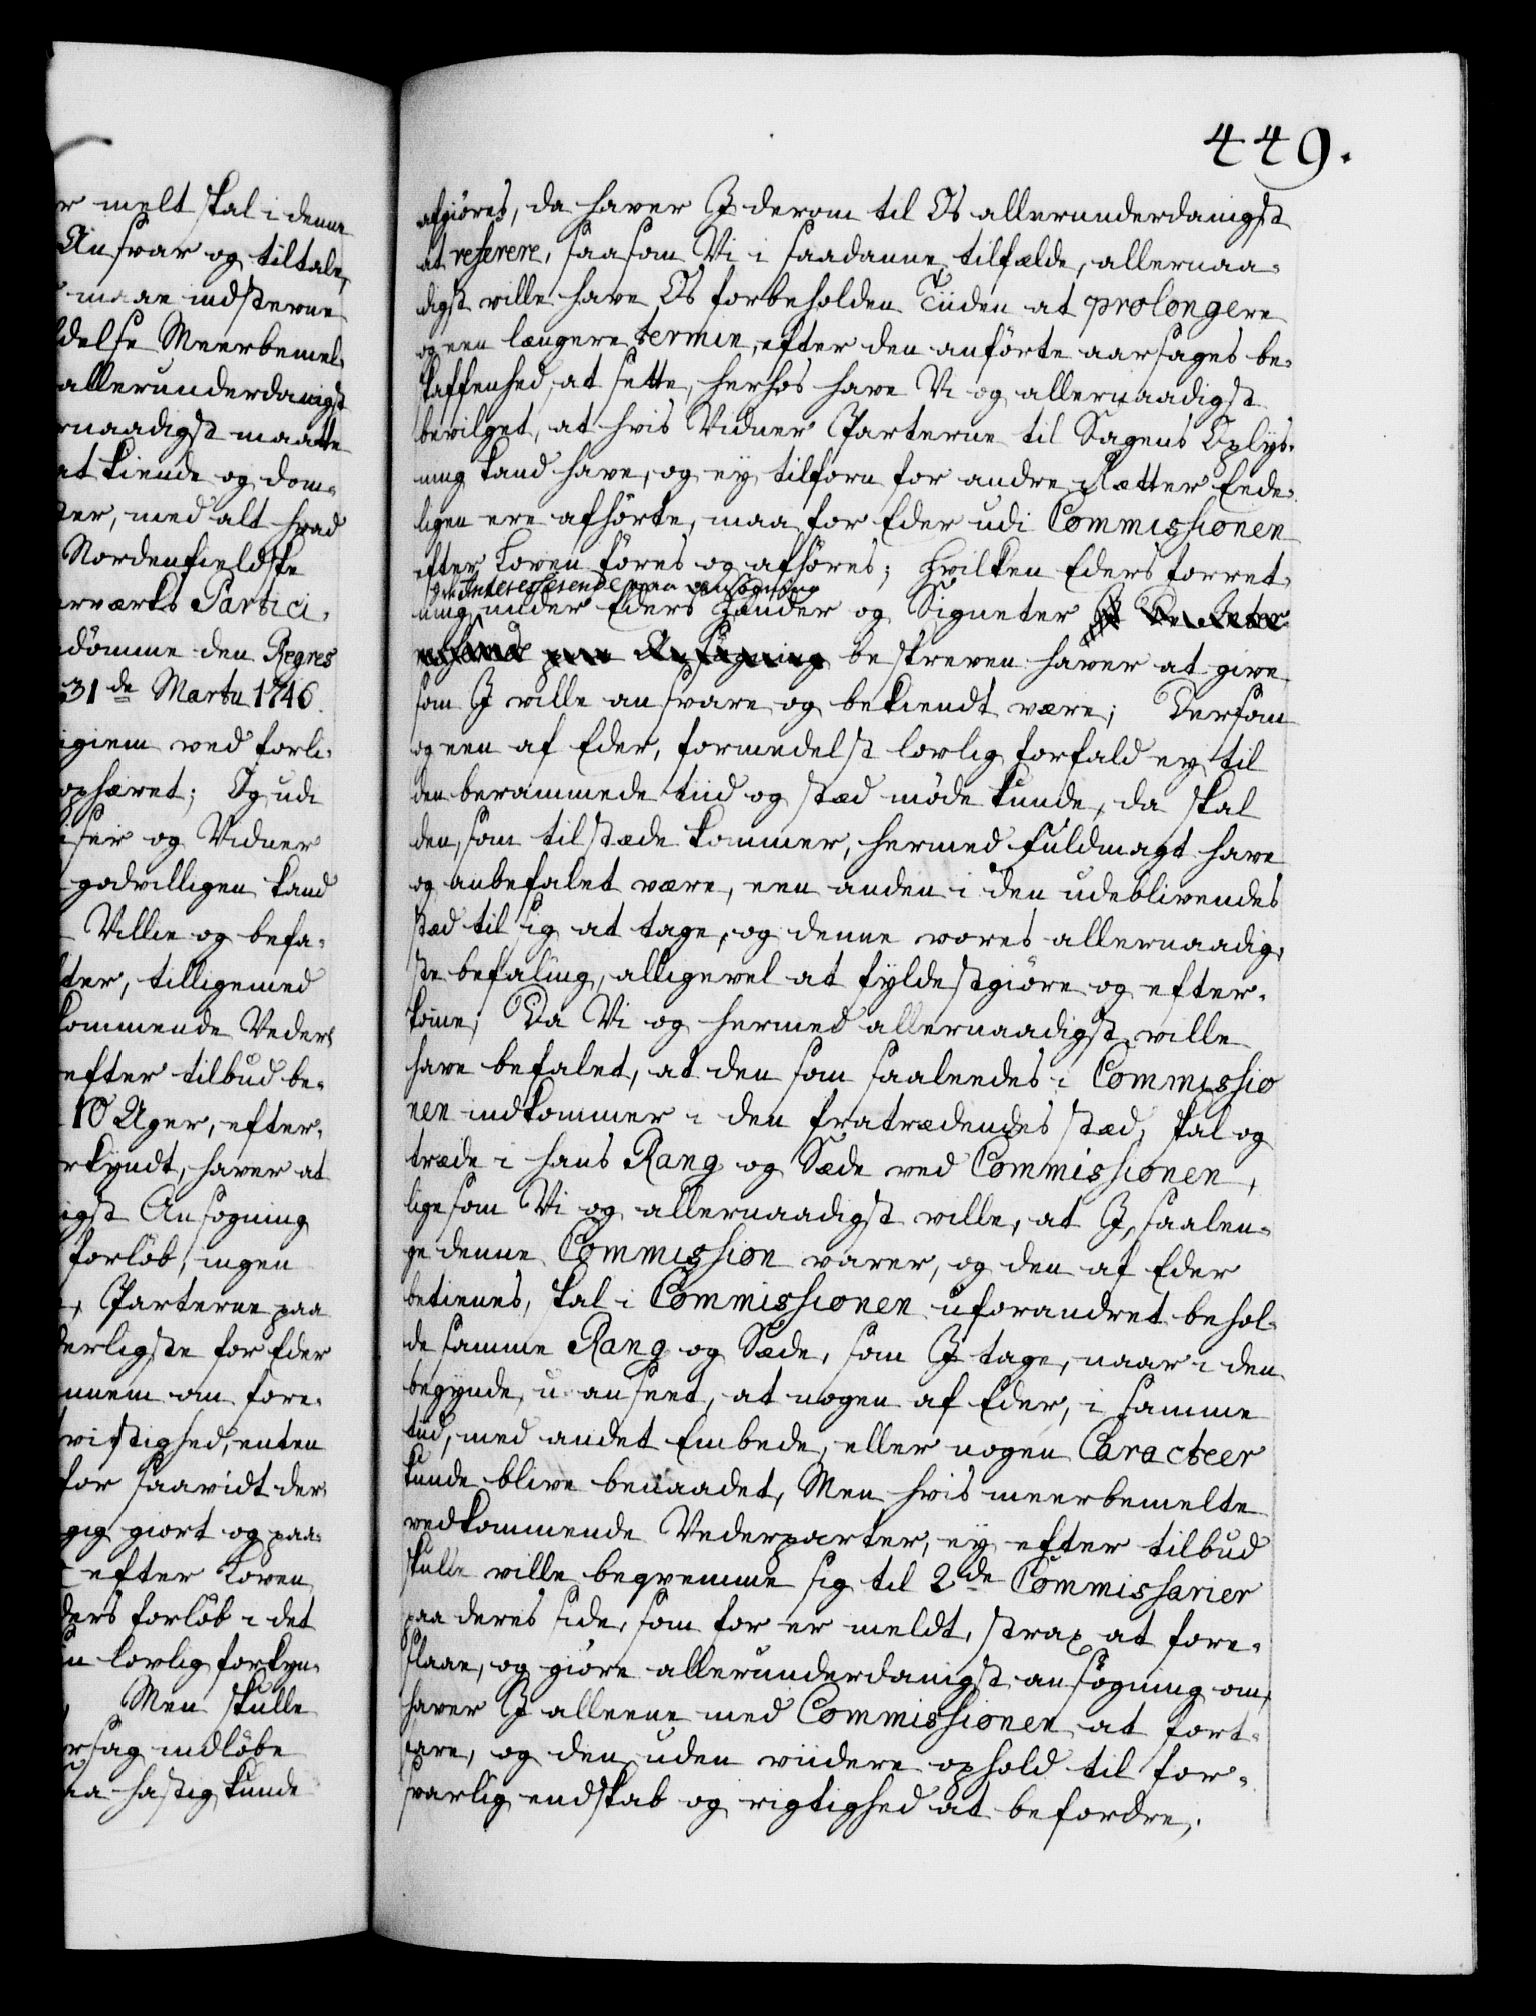 r melt skal i denne
Ansvar og tiltale,
maae indstevne
delse Meerbemel-
allerunderdanigst
rnaadigst maatte
at kiende og dom-
ter, med alt hvad
Nordenfieldske
rværks Partici-
dømme den Regres
31de Martii 1746.
igiem ved forli-
ophævet; Og udi
iser og Vidner
godvilligen kand
Villie og befa-
ter, tilligemed
kommende Veder-
efter tilbud be-
10 Uger, efter-
rkyndt, haver at
igst Ansøgning
forløb, ingen
, Parterne paa
derligste for Eder
nnem om fore-
vistighed, enten
for saavidt der
gig giort og paa-
efter Loven
ders forløb i det
n lovlig forkyn-
, Men skulle
rsag indløbe
aa hastig kunde
449.
afgiøres, da haver I derom til Os allerunderdanigst
at referere, saasom Vi i saadanne tilfælde, allernaa-
digst ville have Os forbeholden Tiiden at prolongere
og een længere termin, efter den anførte aarsages be-
skaffenhed, at sette, herhos have Vi og allernaadigst
bevilget, at hvis Vidner Parterne til Sagens Oplys-
ning kand have, og ey tilforn for andre Rætter Eede-
ligen ere afhørte, maa for Eder udi Commissionen
efter Loven føres og afhøres; hvilken Eders forret-
De Interesserende paa ansøgning
ning under Eders Hænder og Signeter I De Inter
esserende paa Ansøgning beskreven haver at give
som I ville ansvare og bekiendt være; Dersom
og een af Eder, formedelst lovlig forfald ey til
den berammede tiid og stæd møde kunde, da skal
den, som tilstæde kommer, hermed fuldmagt have
og anbefalet være, een anden i den udeblivendes
stæd til sig at tage, og denne vores allernaadig-
ste befaling, alligevel at fyldestgiøre og efter-
komme; Da Vi og hermed allernaadigst ville
have befalet, at den som saaleedes i Commissio
nen indkommer i den fratrædendes stæd, skal og
træde i hans Rang og Sæde ved Commissionen,
ligesom Vi og allernaadigst ville, at I, saalen-
ge denne Commission varer, og den af Eder
betienes, skal i Commissionen uforandret behol-
de samme Rang og Sæde, som I tage, naar i den
begynde, u-anseet, at nogen af Eder, i samme
tiid, med andet Embede, eller nogen Caracteer
kunde blive benaadet, Men hvis meerbemelte
vedkommende Vederparter, ey efter tilbud
skulle ville beqvemme sig til 2de Commissarier
paa deres side, som for er meldt, strax at fore-
slaae, og giøre allerunderdanigst ansøgning om,
haver I alleene med Commissionen at fort-
fare, og den uden viidere ophold til for-
svarlig endskab og rigtighed at befordre,